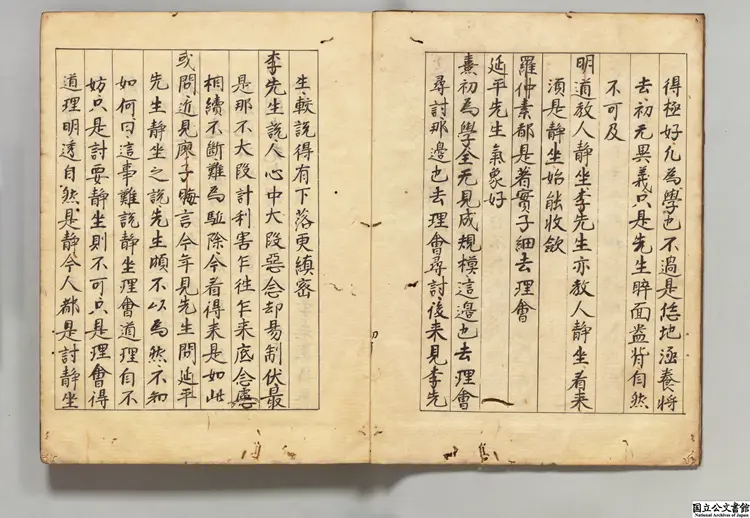 得極好凢為學也不過是恁地涵養將
去初无異義只是先生睟面盎背自然
不可及
明道教人靜坐李先生亦教人靜坐看来
須是靜坐始能收斂
羅仲素都是着實子細去理會
延平先生氣象好
熹初為學全无見成規模這邊也去理會
尋討那邊也去理會尋討後来見李先
生較說得有下落更縝密
李先生說人心中大段惡念却易制伏最
是那不大段計利害乍徃乍来底念慮
相續不斷難為驅除今看得来是如此
或問近見廖子晦言今年見先生問延平
先生靜坐之說先生頗不以為然不知
如何曰這事難說靜坐理會道理自不
妨只是討要靜坐則不可只是理會得
道理明透自然是靜今人都是討靜坐
国立公文書館
National Archives of Japan